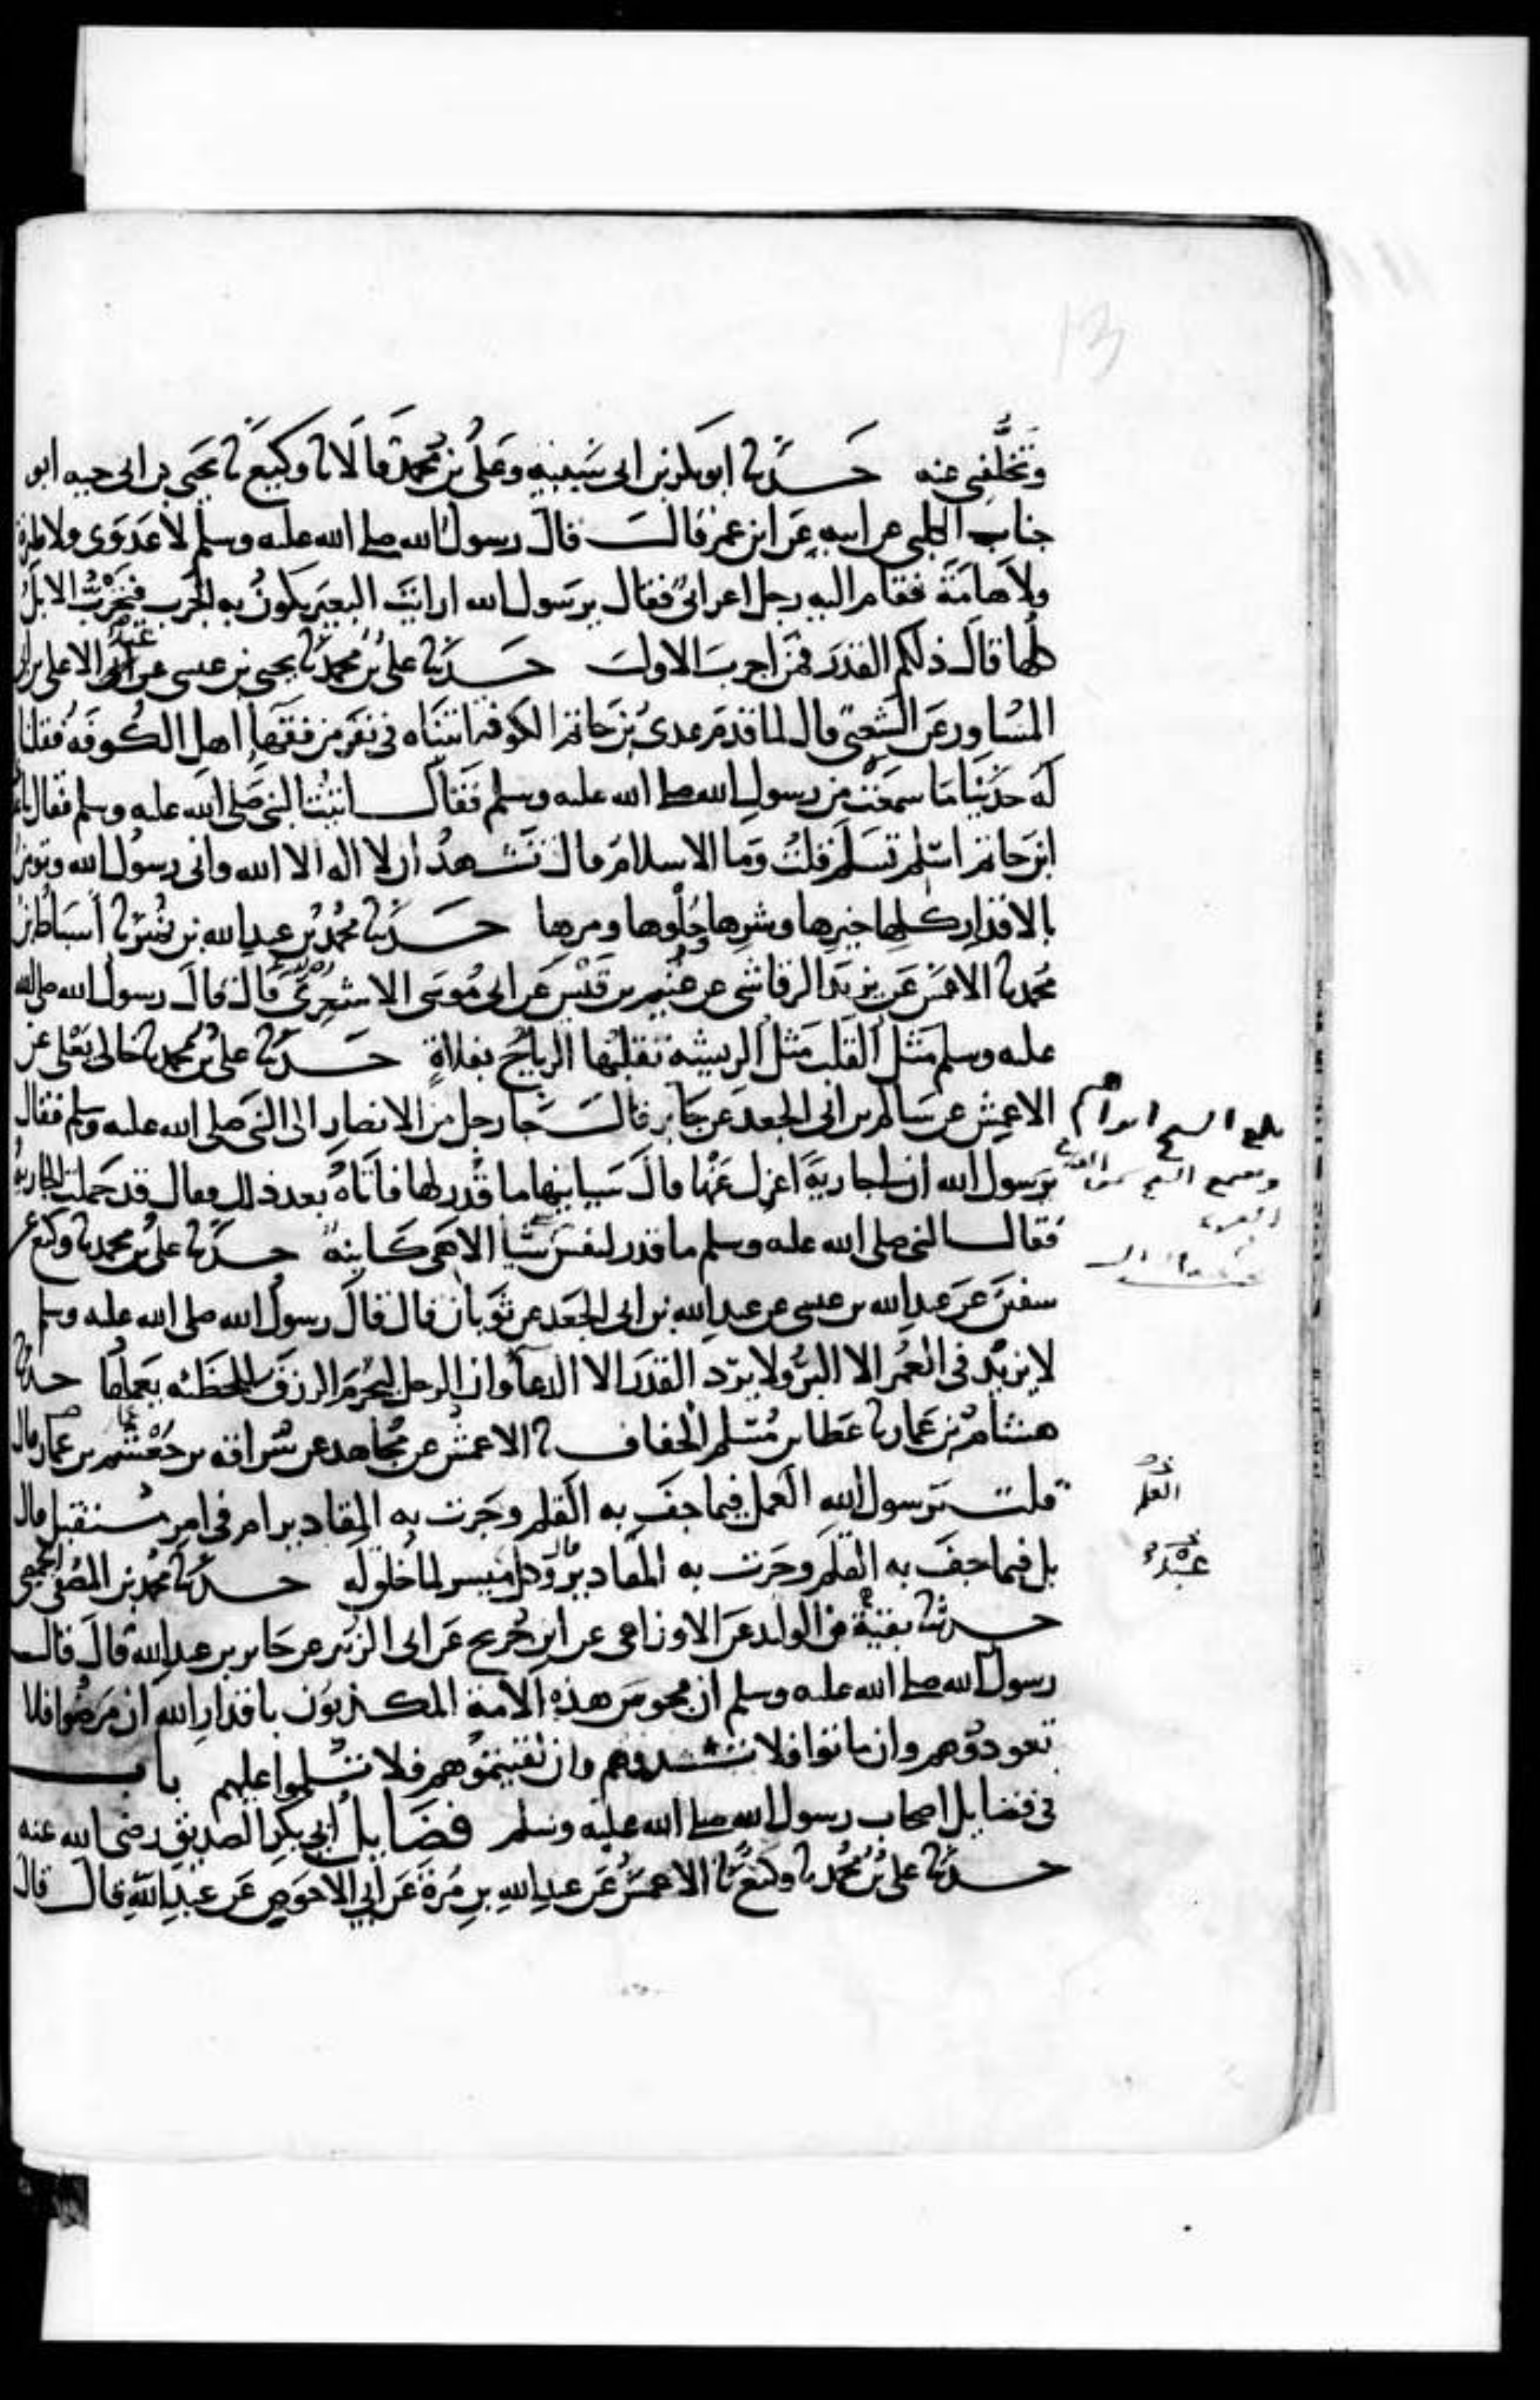 وتخلفي عنه حدثنا ابو بكر بن ابي شيبه وعلي بن محمد قالا نا وكيع نا يحيى بن ابي حيه ابو
جناب الكلبي عن ابيه عن ابن عمر قال قال رسول الله صلى الله عليه وسلم لا عدوى ولا طيرة
ولا هامة فقام اليه رجل اعرابي فقال يرسول الله ارايت البعير يكون به الجرب فتجرب الابل
كلها قال ذلكم القدر فمن اجرب الاول حدثنا علي بن محمد نا يحيى بن عيسى عن عبد الاعلى بن ابي
المساور عن الشعبي قال لما قدم عدي بن حاتم الكوفة اتيناه في نفر من فقهاء اهل الكوفه فقلنا
له حدثنا ما سمعت من رسول الله صلى الله عليه وسلم فقال اتيت النبي صلى الله عليه وسلم فقال يا عدي
ابن حاتم اسلم تسلم قلت وما الاسلام قال تشهد ان لا اله الا الله واني رسول الله وتومن
بالاقدار كلها خيرها وشرها وحلوها ومرها حدثنا محمد بن عبد الله بن نمير نا اسباط بن
محمد نا الاعمش عن يزيد الرقاشي عن غنيم بن قيس عن ابي موسى الاشعري قال قال رسول الله صلى الله
عليه وسلم مثل القلب مثل الريشه تقلبها الرياح بفلاة حدثنا علي بن محمد نا خالي يعلى عن
الاعمش عن سالم بن ابي الجعد عن جابر قال جا رجل من الانصار الى النبي صلى الله عليه وسلم فقال
يرسول الله ان لي جارية اعزل عنها قال سياتيها ما قدر لها فاتاه بعد ذلك فقال قد حملت الجارية
فقال النبي صلى الله عليه وسلم ما قدر لنفس شيا الا هي كاينة حدثنا علي بن محمد نا وكيع عن
سفين عن عبد الله بن عيسى عن عبد الله بن ابي الجعد عن ثوبان قال قال رسول الله صلى الله عليه وسلم
لا يزيد في العمر الا البر ولا يرد القدر الا الدعا وان الرجل ليحرم الرزق للخطئه يعملها حدثنا
هشام بن عمار نا عطا بن مسلم الخفاف نا الاعمش عن مجاهد عن سراقه بن جعشم بن عمار قال
قلت يرسول الله العمل فيما جف به القلم وجرت به المقادير ام في امر مستقبل قال
بل فيما جف به القلم وجرت به المقادير وكل ميسر لما خلق له حدثنا محمد بن المصفى الحمصي
حدثنا بقية بن الوليد عن الاوزاعي عن ابن جريج عن ابي الزبير عن جابر بن عبد الله قال قال
رسول الله صلى الله عليه وسلم ان مجوس هذه الامة المكذبون باقدار الله ان مرضوا فلا
تعودوهم وان ماتوا فلا تشهدوهم وان لقيتموهم فلا تسلموا عليهم باب
في فضايل اصحاب رسول الله صلى الله عليه وسلم فضايل ابي بكر الصديق رضي الله عنه
حدثنا علي بن محمد نا وكيع نا الاعمش عن عبد الله بن مرة عن ابي الاحوص عن عبد الله قال قال
بلغ الشيخ ابراهيم
العلم
13